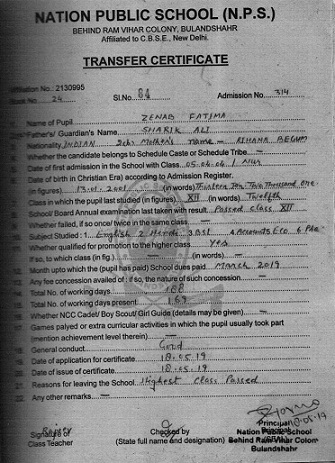 NATION PUBLIC SCHOOL (N.P.S.)
BEHIND RAM VIHAR COLONY, BULANDSHAHR
Affiliated to C.B.S.E., New Delhi.
TRANSFER CERTIFICATE
Affiliation No.: 2130995
Book No. 24 Sl.No. 84 Admission No. 314
Name of Pupil ZENAB FATIMA
Father's/ Guardian's Name SHARIK ALI
Nationality INDIAN Mother's name - REHANA BEGUM
Whether the candidate belongs to Schedule Caste or Schedule Tribe —
Date of first admission in the School with Class 05.04.06 / NUR
Date of birth in Christian Era) according to Admission Register.
(in figures) 13.01.2001 (in words) Two Thousand One
Class in which the pupil last studied (in figures) XII (in words) Twelfth
School/ Board Annual examination last taken with result. Passed Class XII
Whether failed, if so once/ twice in the same class —
Subject Studied : 1. English 2 Hindi 3 BSt 4 Accounts Eco 6 Phe
Whether qualified for promotion to the higher class Yes
If so, to which class (in fig.) — (in words) —
Month upto which the (pupil has paid) School dues paid March 2019
Any fee concession availed of if so, the nature of such concession —
Total No. of working days 188
Total No. of working days present 169
Whether NCC Cadet/ Boy Scout/ Girl Guide (details may be given) —
Games palyed or extra curricular activities in which the pupil usually took part
(mention achievement level therein) —
General conduct Good
Date of application for certificate 18.05.19
Date of issue of certificate 18.05.19
Reasons for leaving the School. Highest Class Passed
Any other remarks. —
Signature of
Class Teacher
Checked by
(State full name and designation)
Principal
Nation Public School
Behind Ram Vihar Colony
Bulandshahr